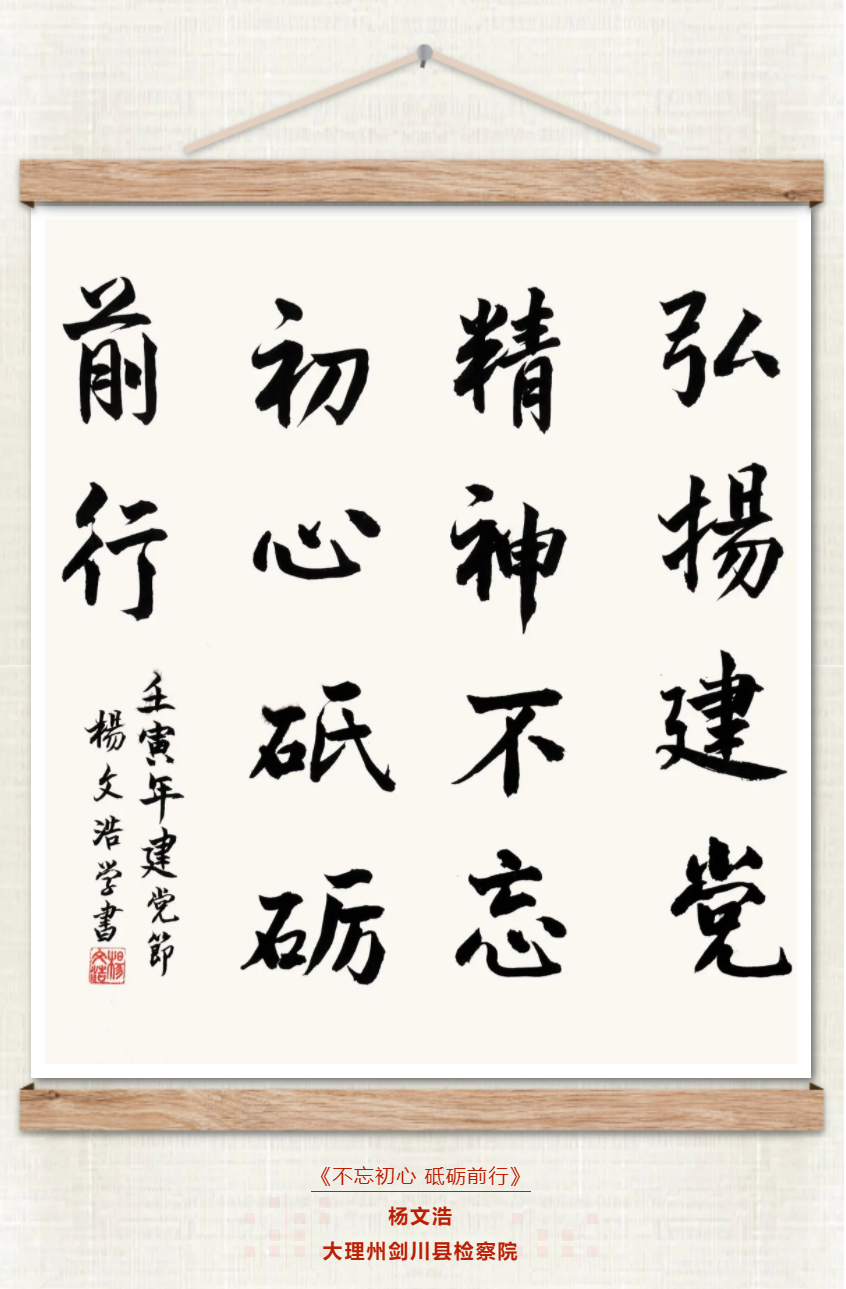 弘揚建党
精神不忘
初心砥砺
前行
壬寅年建党節
楊文浩学書
楊文浩
《不忘初心 砥砺前行》
杨文浩
大理州剑川县检察院